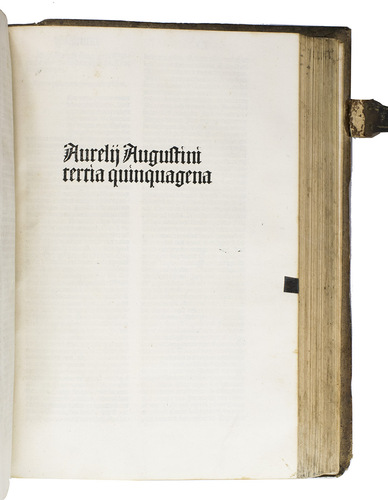 Aurelij Augustini
tertia quinquagena